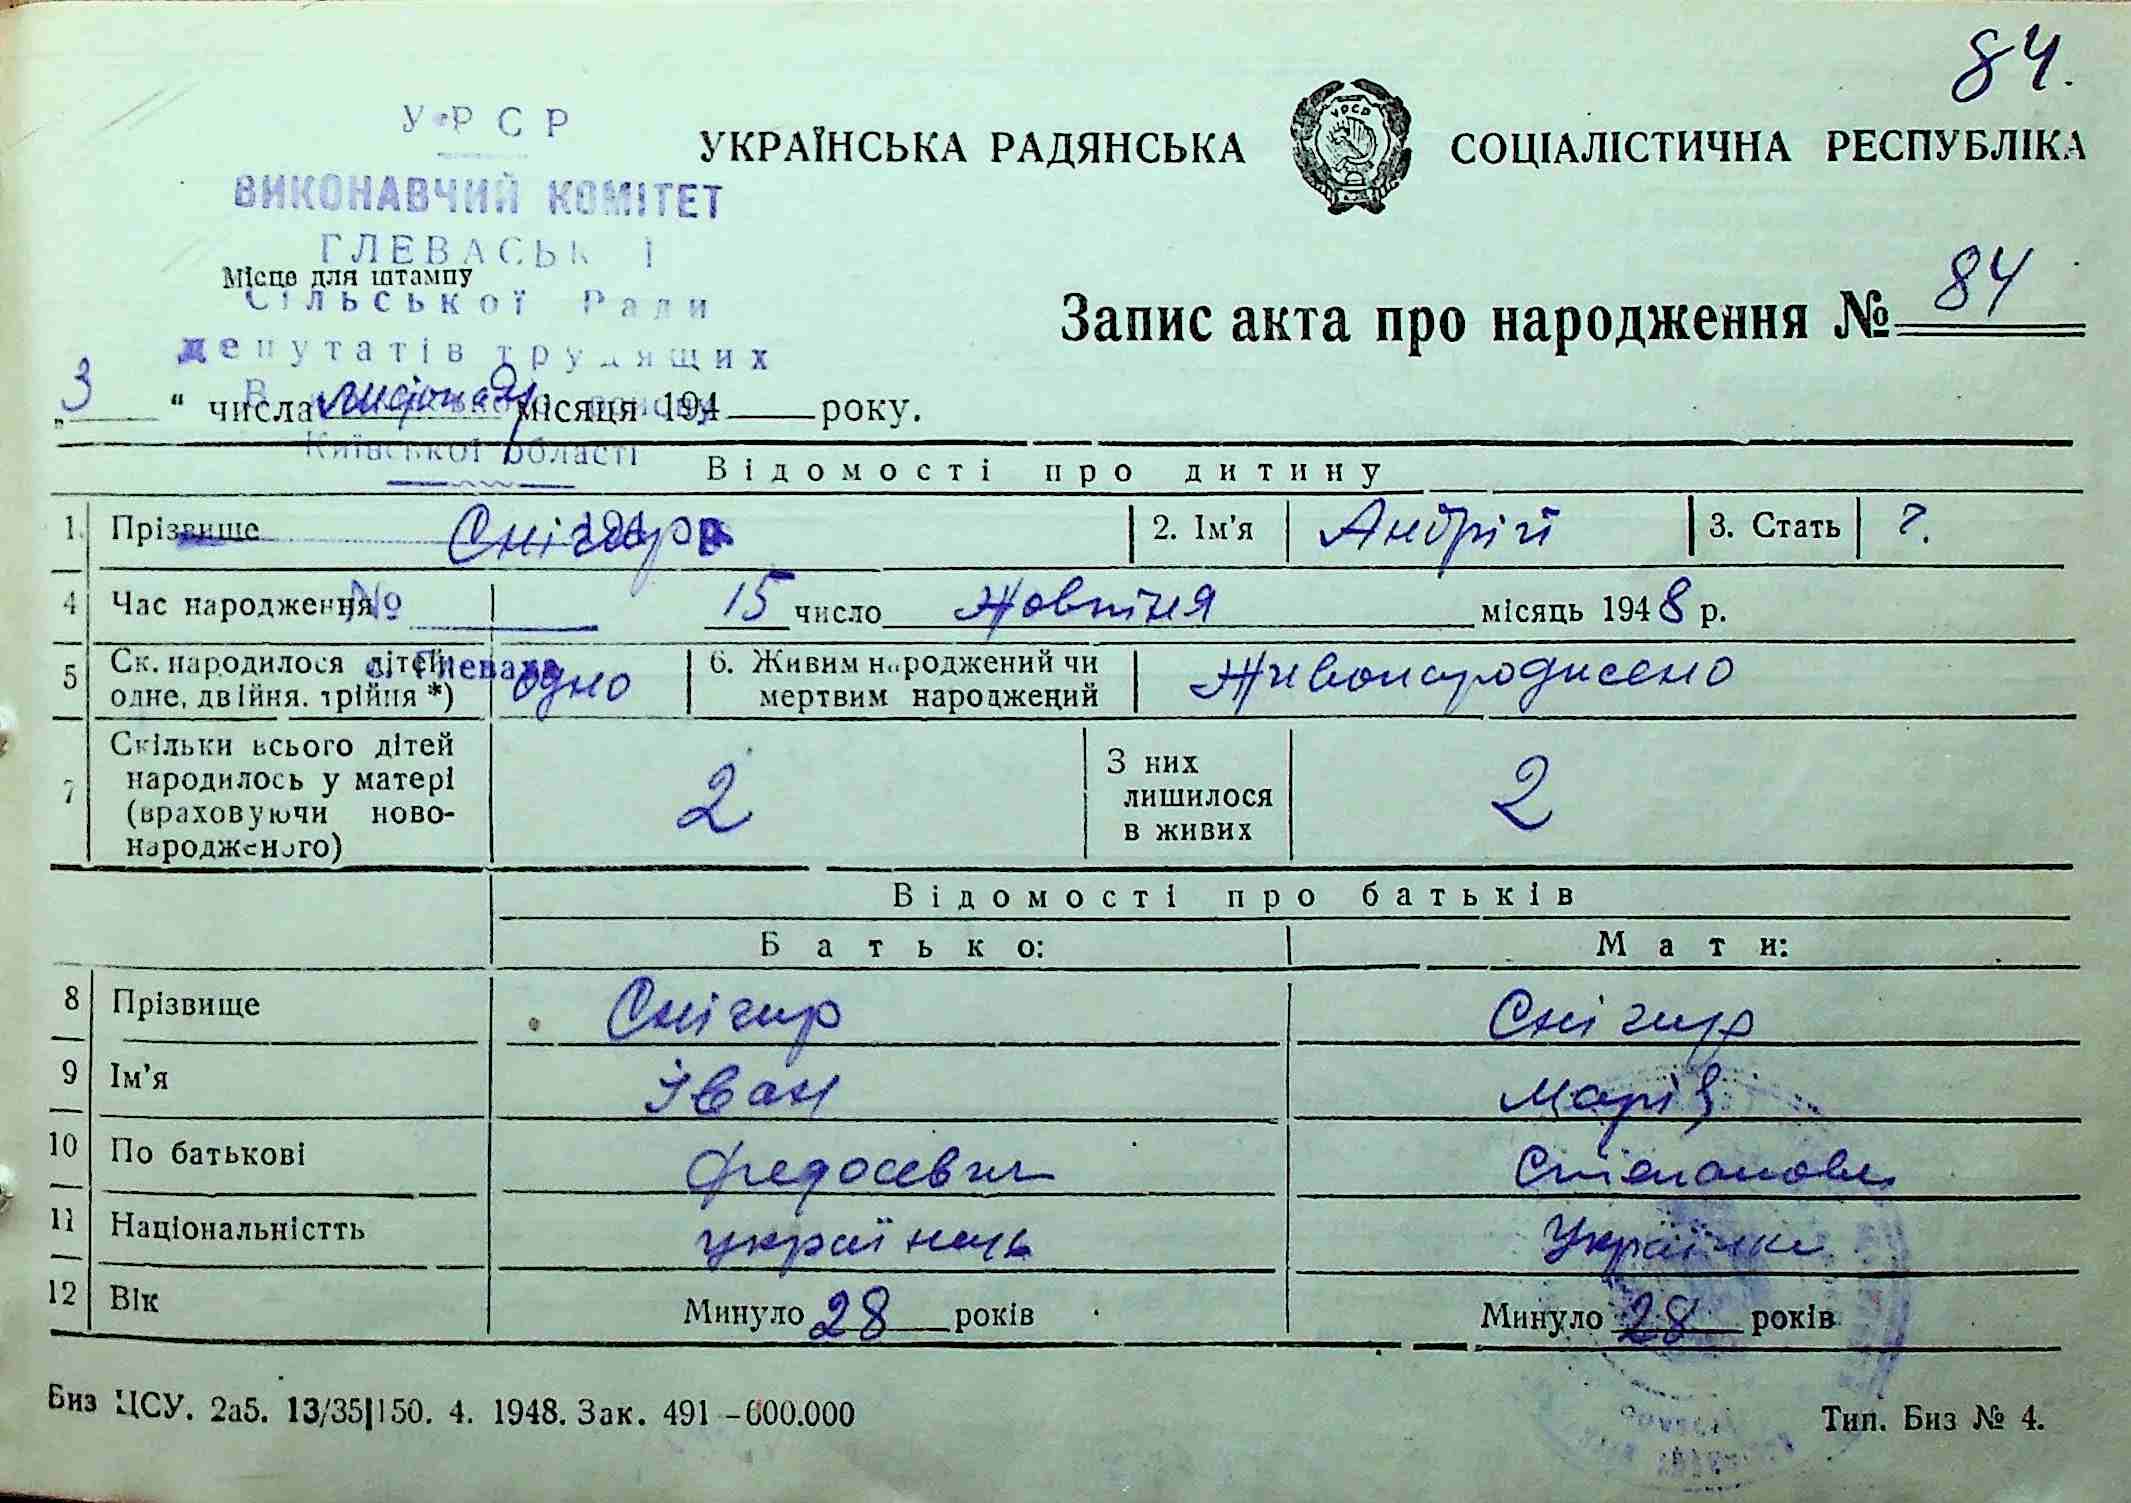 84.
У Р С Р
УКРАЇНСЬКА РАДЯНСЬКА СОЦІАЛІСТИЧНА РЕСПУБЛІКА
ВИКОНАВЧИЙ КОМІТЕТ
ГЛЕВАСЬК І
Місце для штампу
Сільської Ради
Запис акта про народження № 84
депутатів трудящих
„3“ числа листопада місяця 194 року.
Київської області
Відомості про дитину
1. Прізвище Снігир 2. Ім'я Андрій 3. Стать ч.
4 Час народження 15 число Жовтня місяць 1948 р.
№
с. Глеваха
5 Ск. народилося дітей: одно 6. Живим народжений чи Живонароджено
одне, двійня, трійня *) мертвим народжений
7 Скільки всього дітей народилось у матері (враховуючи ново-народженого) 2 З них лишилося в живих 2
Відомості про батьків
Батько: Мати:
8 Прізвище Снігир Снігир
9 Ім'я Іван Марія
10 По батькові Федосевич Степановн
11 Національністть українець Українка
12 Вік Минуло 28 років Минуло 28 років
Биз ЦСУ. 2а5. 13/35|150. 4. 1948. Зак. 491 -600.000 Тип. Биз № 4.